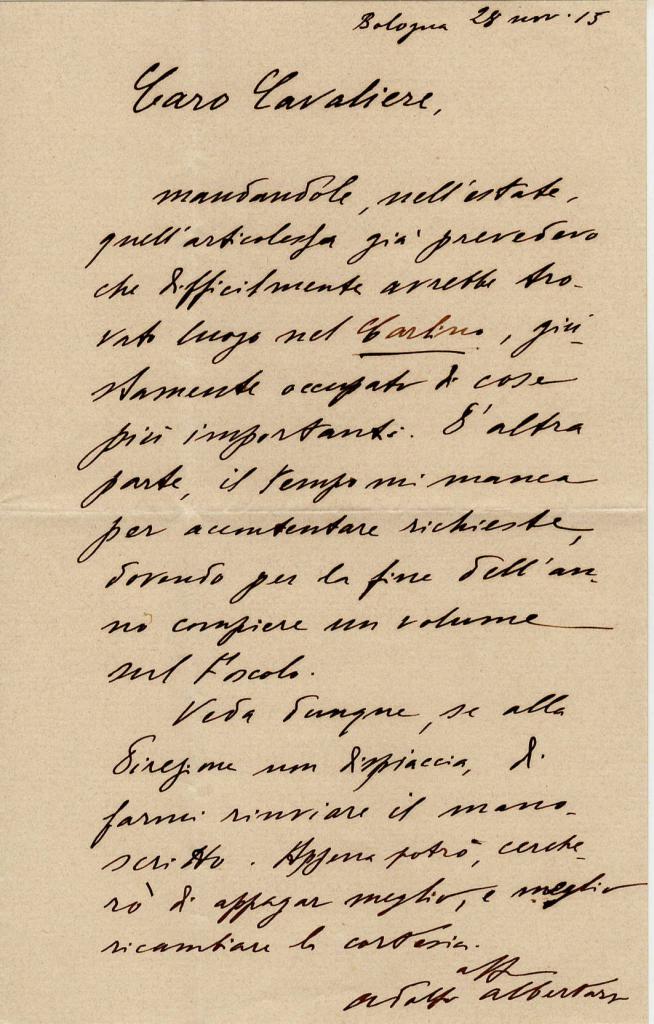 Bologna 28 nov. 15
Caro Cavaliere,
mandandole, nell'estate,
quell'articolessa già prevedevo
che difficilmente avrebbe tro-
vato luogo nel Carlino, giu-
stamente occupato di cose
più importanti. D'altra
parte, il tempo mi manca
per accontentare richieste,
dovendo per la fine dell'an-
no compiere un volume
sul Foscolo.
Veda dunque, se alla
Direzione non dispiaccia, di
farmi rinviare il mano-
scritto. Appena potrò, cerche-
rò di appagar meglio, e meglio
ricambiare la cortesia.
aff
Adolfo Albertazzi